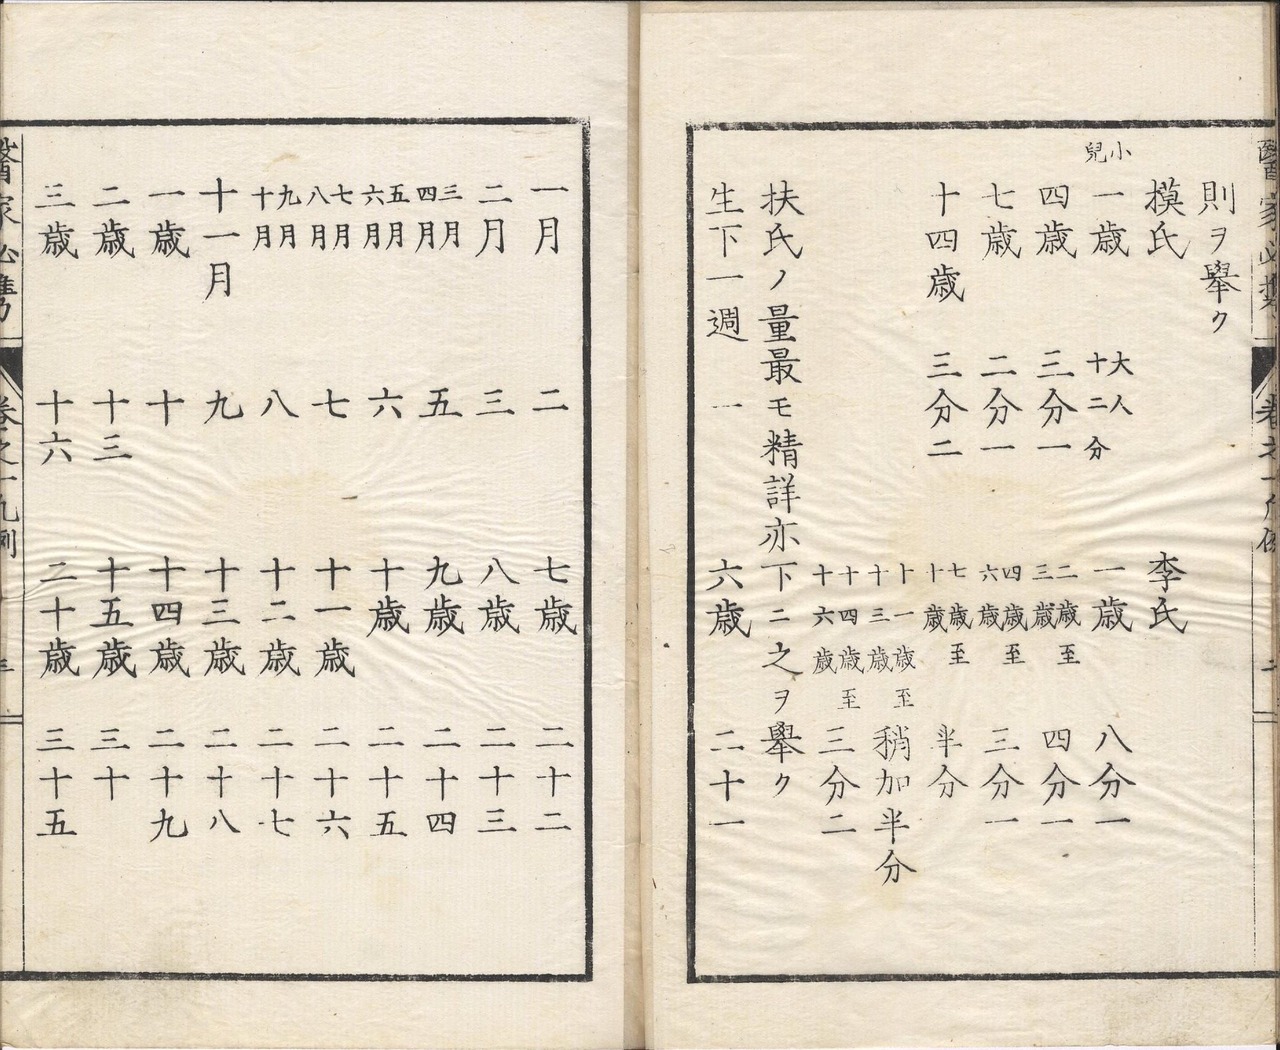 則ヲ舉ク
摸氏 李氏
小兒 一歳 大人十二分 一歳 八分一
四歳 三分一 二歳至三歳 四分一
七歳 二分一 四歳至六歳 三分一
十四歳 三分二 七歳至十歳 半分
十一歳至十三歳 稍加半分
十四歳至十六歳 三分二
扶氏ノ量最モ精詳亦下ニ之ヲ舉ク
生下一週 一 六歳 二十一
一月 二 七歳 二十二
二月 三 八歳 二十三
三月四月 五 九歳 二十四
五月六月 六 十歳 二十五
七月八月 七 十一歳 二十六
九月十月 八 十二歳 二十七
十一月 九 十三歳 二十八
一歳 十 十四歳 二十九
二歳 十三 十五歳 三十
三歳 十六 二十歳 三十五